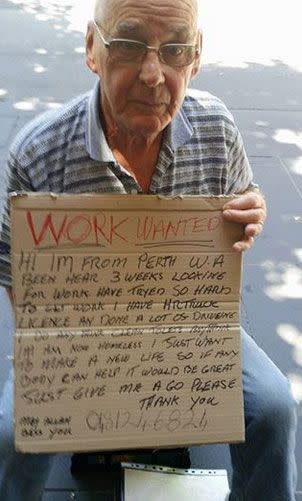 WORK WANTED
HI IM FROM PERTH W.A
BEEN HEAR 3 WEEKS LOOKING
FOR WORK HAVE TRYED SO HARD
TO GET WORK I HAVE HR TRUCK
LICENCE AN DONE A LOT OF DRIVEING
I DO ANY
IM AM NOW HOMELESS I JUST WANT
TO MAKE A NEW LIFE SO IF ANY
BODY CAN HELP IT WOULD BE GREAT
JUST GIVE ME A GO PLEASE
THANK YOU
MAY 048124 6824
YOU